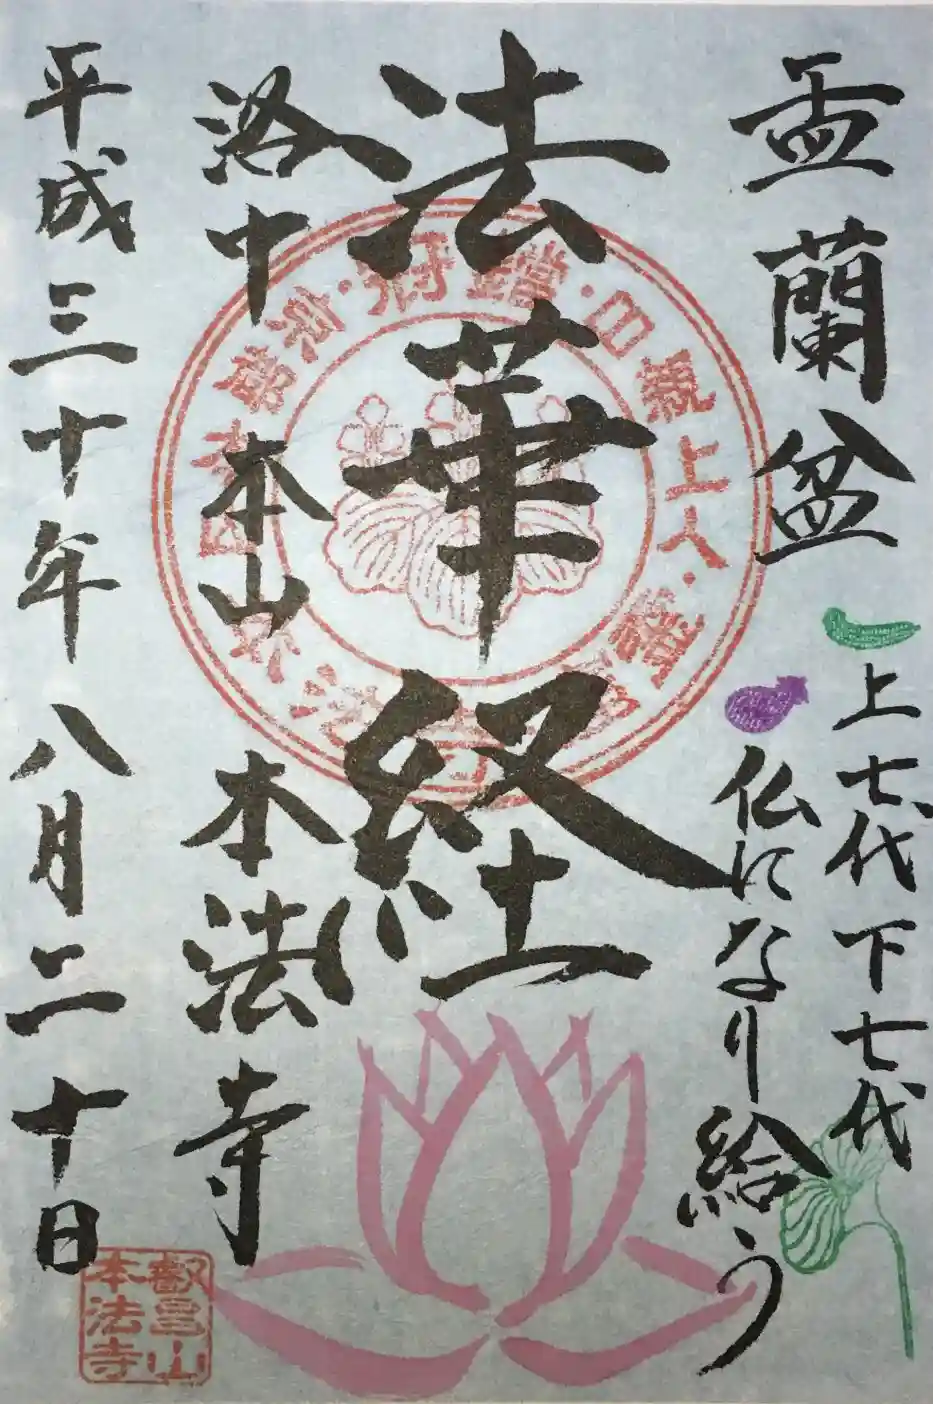 盂蘭盆
上七代下七代
仏になり給う
法華経
洛中 本山 本法寺
平成三十年八月二十日
日親上人
叡昌山
本法寺